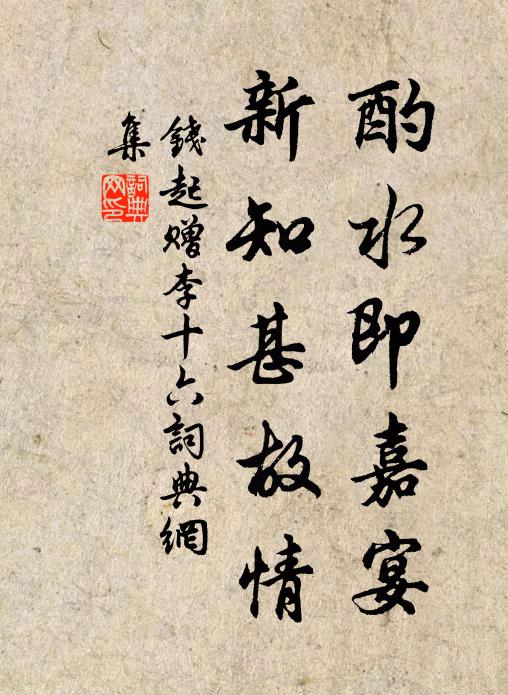 酌水即嘉宴
新知甚故情
錢起贈李十六詞典網
集
詞典
网印